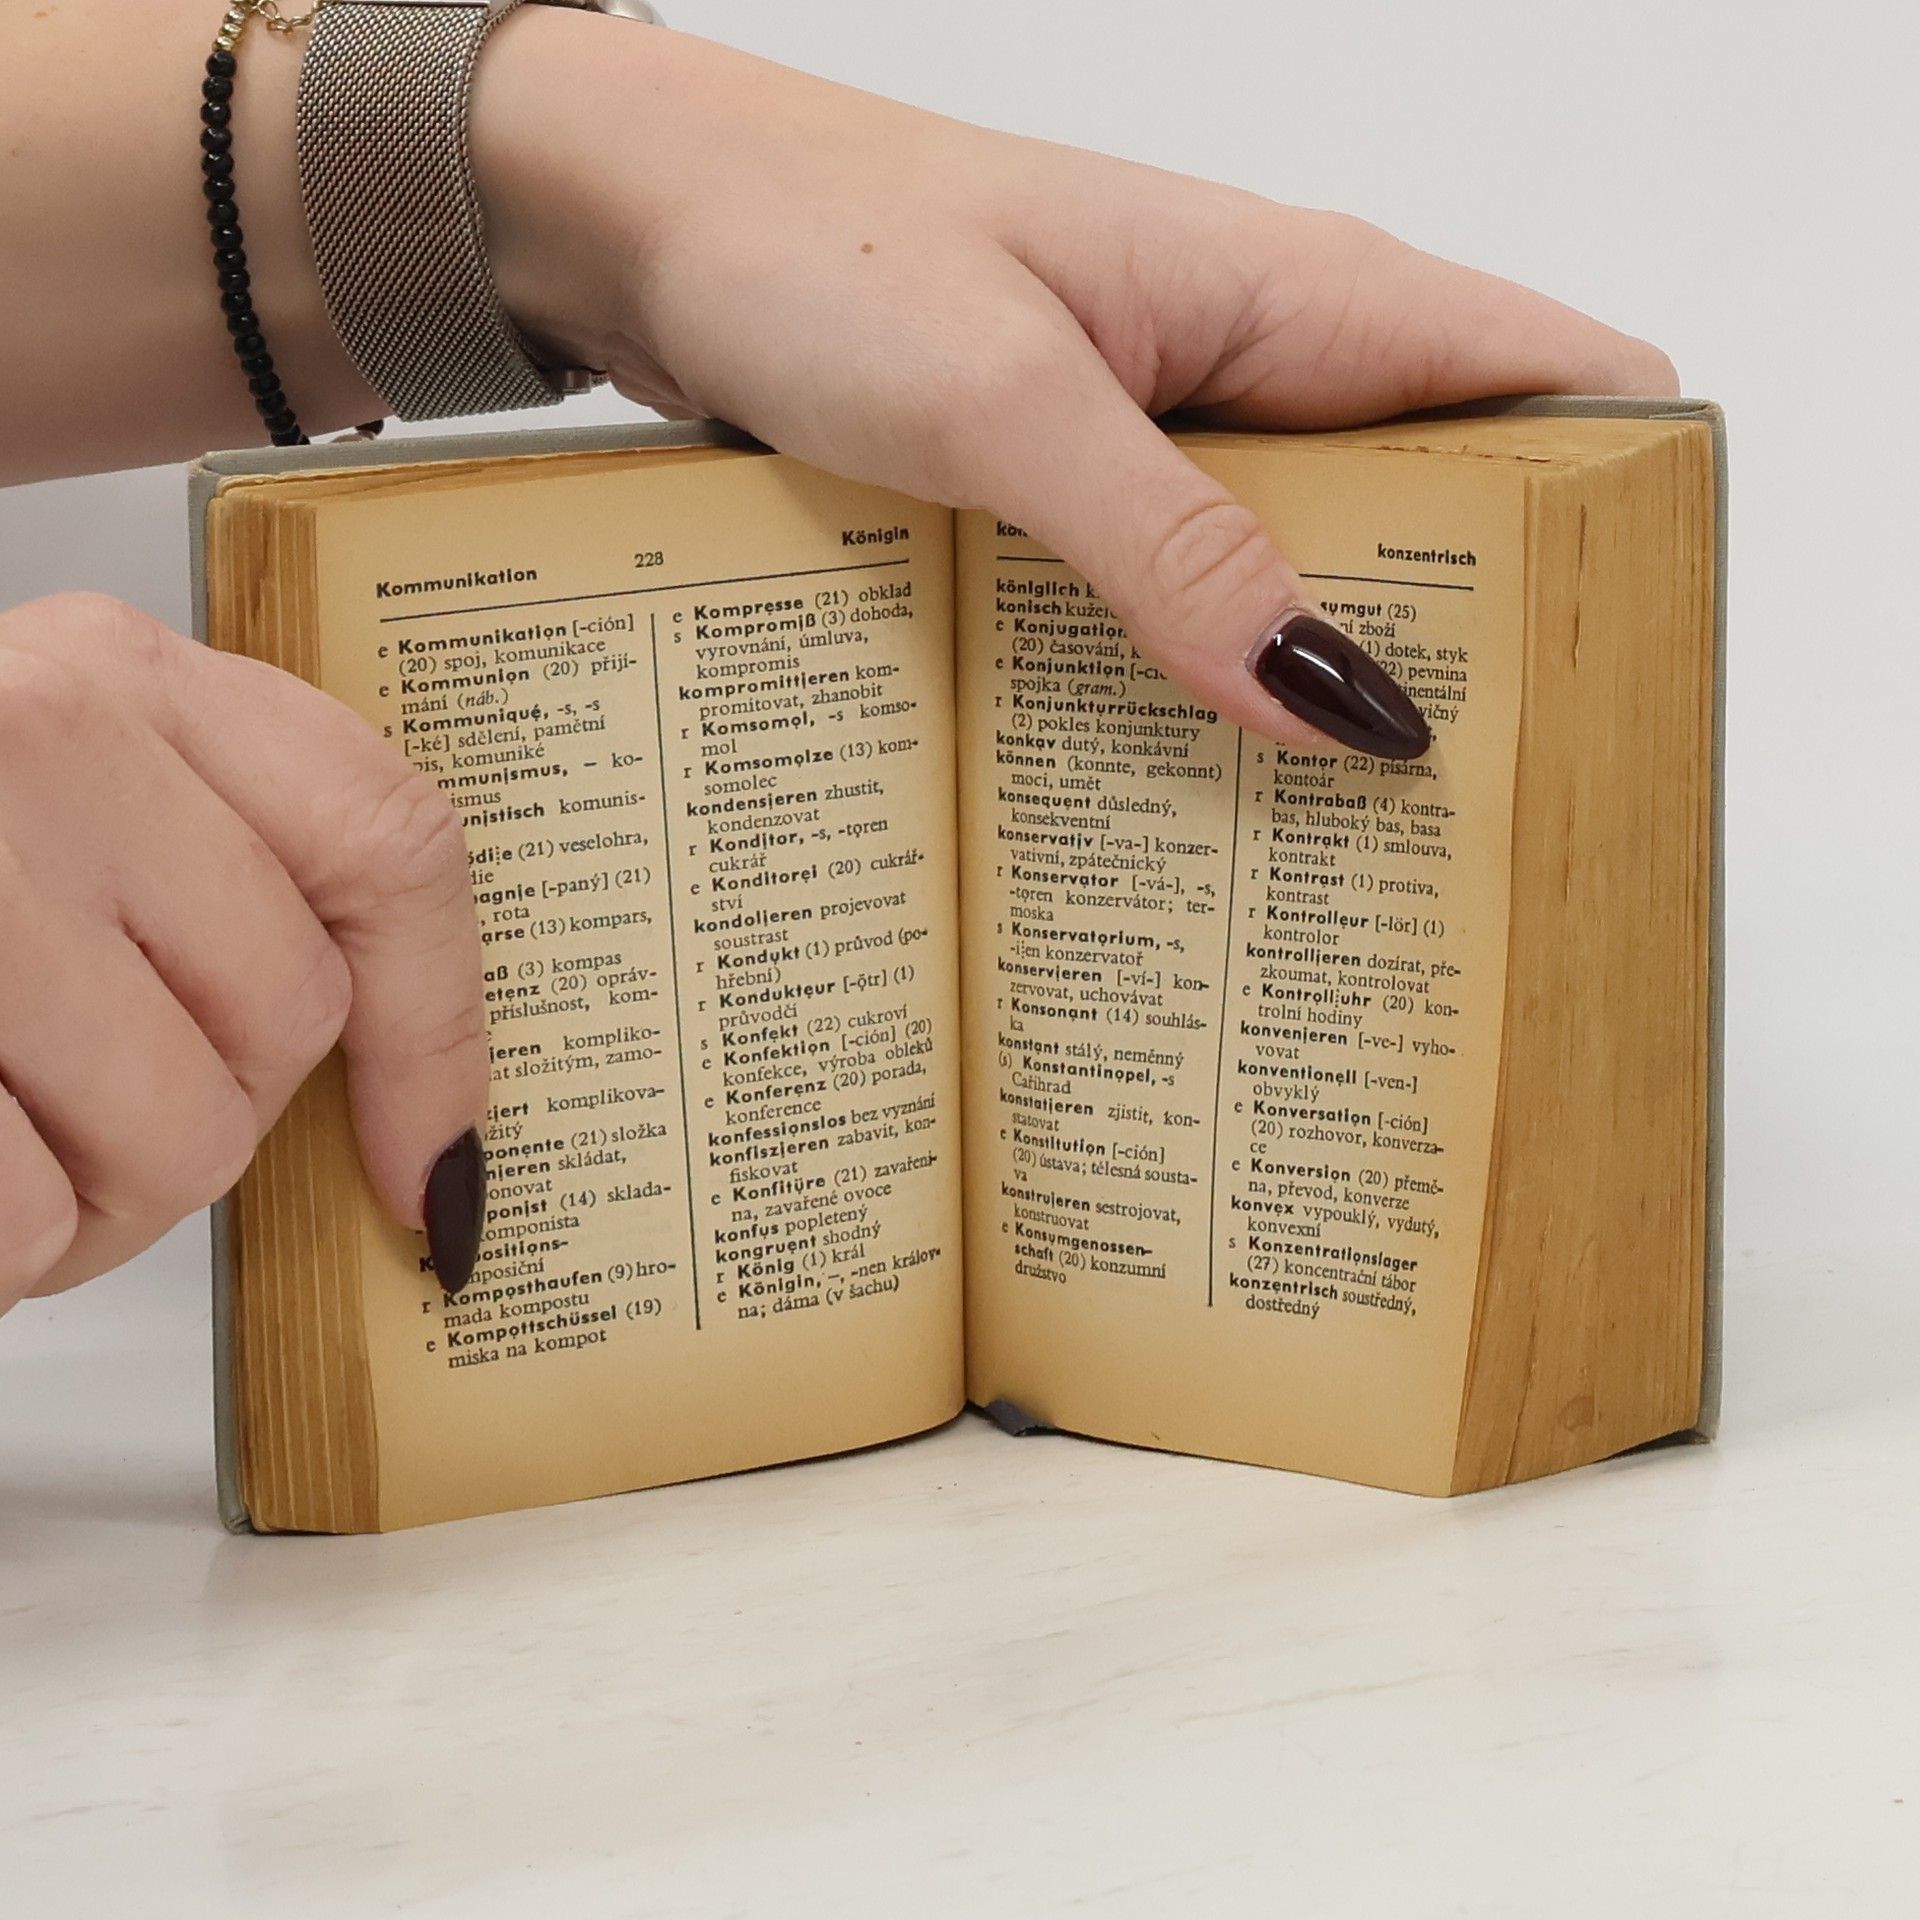 Kommunikation 228 Königin
e Kommunikation [-ción]
(20) spoj, komunikace
e Kommunion (20) přijí-
mání (náb.)
s Kommuniqué, -s, -s
[-ké] sdělení, pamětní
komuniké
– ko-
komunis-
(21) veselohra,
[-paný] (21)
rota
(13) kompars,
(3) kompas
(20) opráv-
příslušnost, kom-
kompliko-
složitým, zamo-
komplikova-
(21) složka
skládat,
(14) sklada-
komponista
r Komposthaufen (9) hro-
mada kompostu
e Kompottschüssel (19)
miska na kompot
e Kompresse (21) obklad
s Kompromiß (3) dohoda,
vyrovnání, úmluva,
kompromis
kompromittieren kom-
promitovat, zhanobit
r Komsomol, -s komso-
mol
r Komsomolze (13) kom-
somolec
kondensieren zhustit,
kondenzovat
r Konditor, -s, -toren
cukrář
e Konditorei (20) cukrář-
ství
kondolieren projevovat
soustrast
r Kondukt (1) průvod (po-
hřební)
r Kondukteur [-ȫtr] (1)
průvodčí
s Konfekt (22) cukroví
e Konfektion [-ción] (20)
konfekce, výroba obleků
e Konferenz (20) porada,
konference
konfessionslos bez vyznání
konfiszieren zabavit, kon-
fiskovat
e Konfitüre (21) zavařeni-
na, zavařené ovoce
konfus popletený
kongruent shodný
r König (1) král
e Königin, –, -nen králov-
na; dáma (v šachu)
konzentrisch
königlich
konisch
e Konjugation
(20) časování,
e Konjunktion
spojka (gram.)
r Konjunkturrückschlag
(2) pokles konjunktury
konkav dutý, konkávní
können (konnte, gekonnt)
moci, umět
konsequent důsledný,
konsekventní
konservativ [-va-] konzer-
vativní, zpátečnický
r Konservator [-vá-], -s,
-toren konzervátor; ter-
moska
s Konservatorium, -s,
-ien konzervatoř
konservieren [-ví-] kon-
zervovat, uchovávat
r Konsonant (14) souhlás-
ka
konstant stálý, neměnný
(s) Konstantinopel, -s
Cařihrad
konstatieren zjistit, kon-
statovat
e Konstitution [-ción]
(20) ústava; tělesná sousta-
va
konstruieren sestrojovat,
konstruovat
e Konsumgenossen-
schaft (20) konzumní
družstvo
(25)
zboží
(1) dotek, styk
pevnina
s Kontor (22) písárna,
kontoár
r Kontrabaß (4) kontra-
bas, hluboký bas, basa
r Kontrakt (1) smlouva,
kontrakt
r Kontrast (1) protiva,
kontrast
r Kontrolleur [-lör] (1)
kontrolor
kontrollieren dozírat, pře-
zkoumat, kontrolovat
e Kontrolluhr (20) kon-
trolní hodiny
konvenieren [-ve-] vyho-
vovat
konventionell [-ven-]
obvyklý
e Konversation [-ción]
(20) rozhovor, konverza-
ce
e Konversion (20) přemě-
na, převod, konverze
konvex vypouklý, vydutý,
konvexní
s Konzentrationslager
(27) koncentrační tábor
konzentrisch soustředný,
dostředný